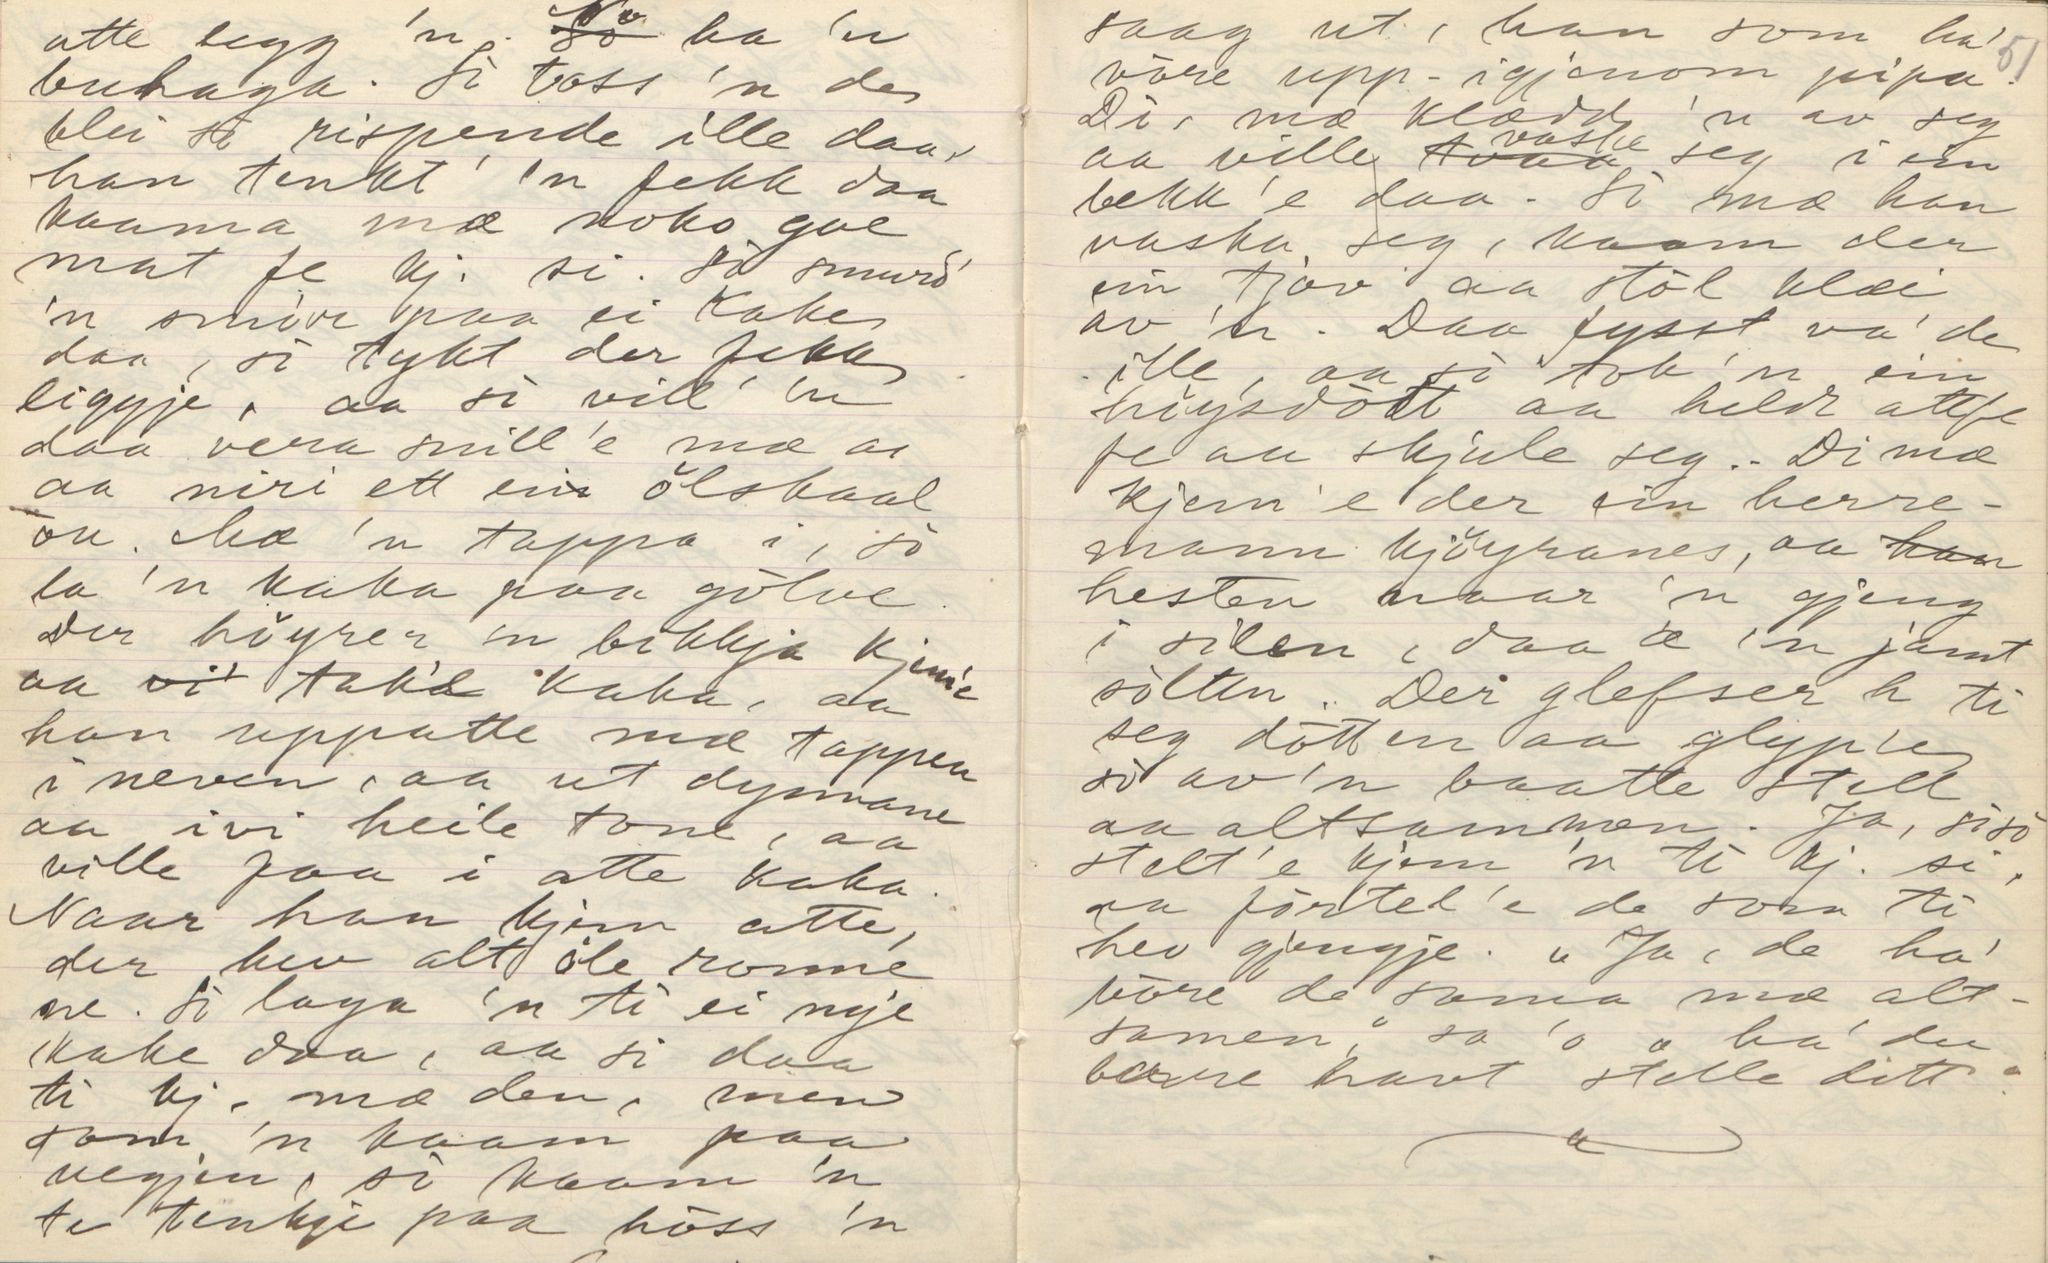 atte legg 'n. No ha 'n
buhaga. Si toss 'n de
blei så rispende ille daa,
han tenkt' 'n fekk daa
kaama mæ noko goe
mat fe kj. si. Så smurd'
'n smör paa ei kake
daa, så tykt der fekk
liggje, aa så vill 'n
daa vera snill'e mæ a
aa niri ett ein ölskaal
ou. Mæ 'n tappa i, så
la 'n kaka paa gölve.
Der höyrer 'n bikkja kjem'e
aa tak'e kaka, aa
han uppatte mæ tappen
i neven, aa ut dynnane
aa ivi heile tone, aa
ville faa i atte kaka.
Naar han kjem atte,
der hev alt öle ronne
ne. Så laga 'n ti ei nye
kake daa, aa si daa
ti kj. mæ den, men
som 'n kaam paa
vegjen, så kaam 'n
te tenkje paa höss 'n
51
saag ut, han som ha'
vöre upp-igjenom pipa.
Di, mæ klædd 'n av seg
aa ville vaske seg i ein
bekk'e daa. Så mæ han
vaska seg, kaam der
ein tjov aa stöl klæi
av 'n. Daa fysst va' de
ille, aa så tok 'n ein
höysdött aa heldt attfe
fe aa skjule seg.. Di mæ
kjem'e der ein herre-
mann kjöyranes, aa
hesten naar 'n gjeng
i silen, daa æ 'n jamt
sölten. Der glefser h ti
seg dötten aa glyp'e
så av 'n baatte stell
aa altsammen. Ja, si så
stelt'e kjem 'n ti kj. si,
aa förtel'e de som ti
hev gjengje. "Ja, de ha'
vöre de sama mæ alt-
samen," sa 'o "ha' du
berre havt stelle ditt."